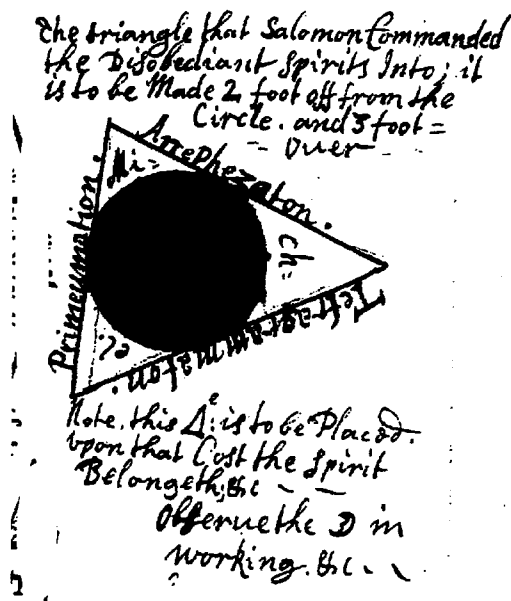 The triangle that Salomon Commanded
the Disobediant Spirits Into; it
is to be Made 2 foot off from the
Circle. and 3 foot =
- Ouer -
Anephezaton.
Mi=
Primeumation.
ch=
el.
Tetragrammaton.
Note, this Δe: is to be Placed.
vpon that Cost the Spirit
Belongeth, &c - -
Obserue the ☽ in
working. &c. - -